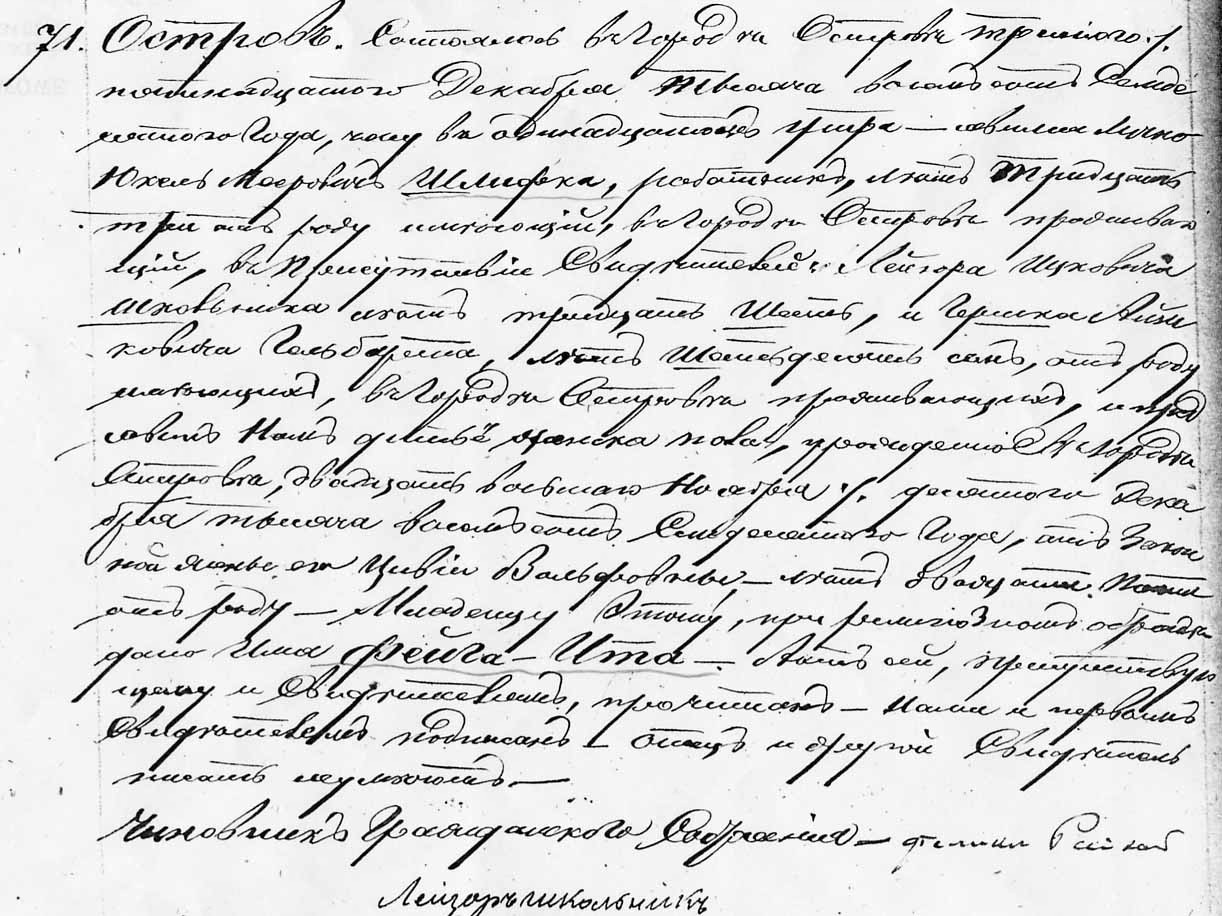 71. Островъ. Состоялось въ Городѣ Островѣ третьяго /.
пятнадцатаго Декабря тысяча восемьсотъ семьде
сятого Года, часу въ одинадцатомъ утра — явился лично
Юхель Меровичъ Шлифека, работникъ, лѣтъ тридцать
три отъ роду имѣющій, въ Городѣ Островѣ проживаю
щій, въ присутствіи Свидѣтелей: Лейзора Ицковича
Школьника лѣтъ тридцать шесть, и Гершка Айзи
ковича Гольберта, лѣтъ шестьдесятъ семь, отъ роду
имѣющихъ, въ Городѣ Островѣ проживающихъ, и пред
явилъ Намъ дитя женска пола, урожденное въ Городѣ
Островѣ, двадцать восьмаго Ноября /. десятого Дека
бря тысяча восемьсотъ Семдесятого Года, отъ Закон
ной жены его Цивіи Вольфовны, — лѣтъ двадцать пять
отъ роду — Младенцу Этому, при религіозномъ обрядѣ
дано Имя Фейга-Ита — Актъ сей, присутствую
щему и Свидѣтелямъ, прочитанъ — Нами и первымъ
Свидѣтелемъ подписанъ — отецъ и другой Свидѣтель
писать неумѣютъ —
Чиновникъ Гражданского Состоянія —
Лейзоръ школьникъ